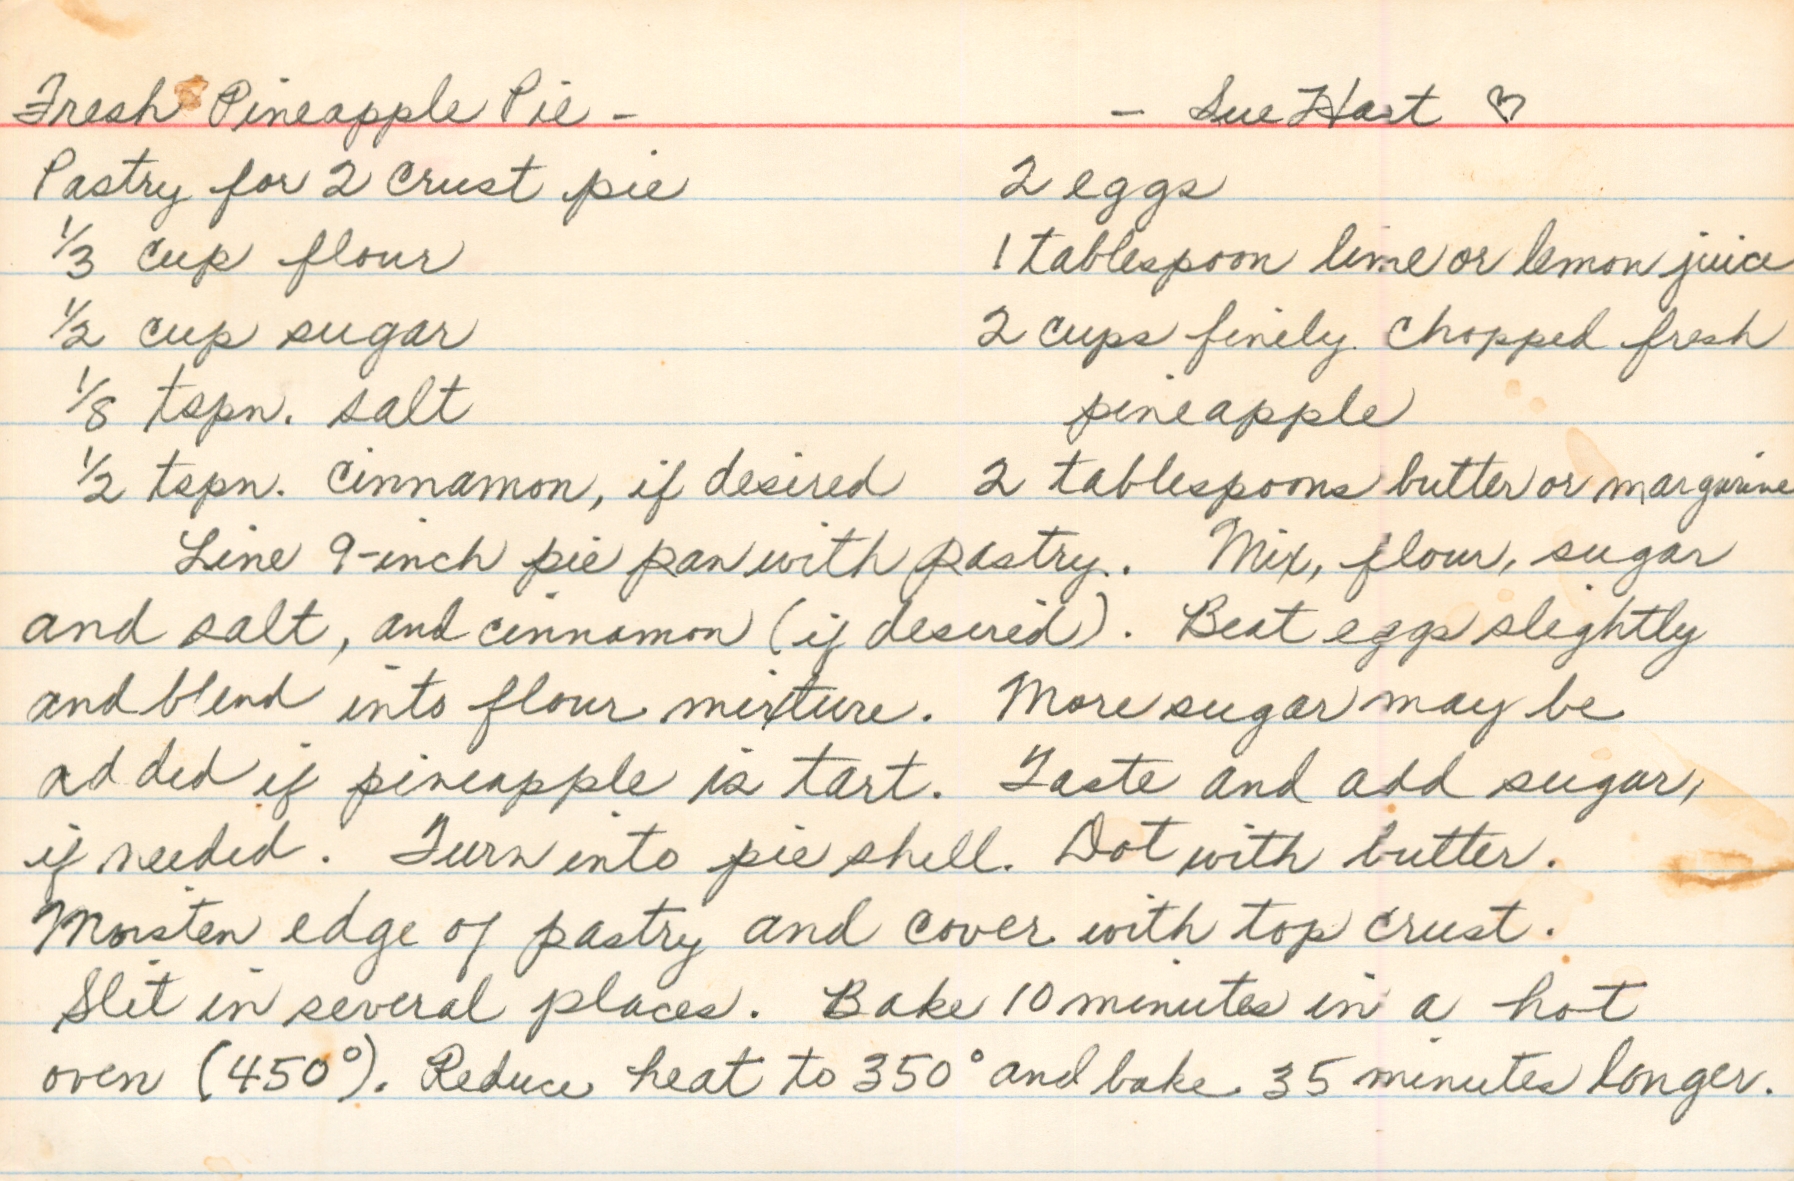 Fresh Pineapple Pie - - Sue Hart ♡
Pastry for 2 crust pie 2 eggs
1/3 cup flour 1 tablespoon lime or lemon juice
1/2 cup sugar 2 cups finely chopped fresh
1/8 tspn. salt pineapple
1/2 tspn. cinnamon, if desired 2 tablespoons butter or margarine
Line 9-inch pie pan with pastry. Mix, flour, sugar
and salt, and cinnamon (if desired). Beat eggs slightly
and blend into flour mixture. More sugar may be
added if pineapple is tart. Taste and add sugar,
if needed. Turn into pie shell. Dot with butter.
Moisten edge of pastry and cover with top crust.
Slit in several places. Bake 10 minutes in a hot
oven (450°). Reduce heat to 350° and bake 35 minutes longer.